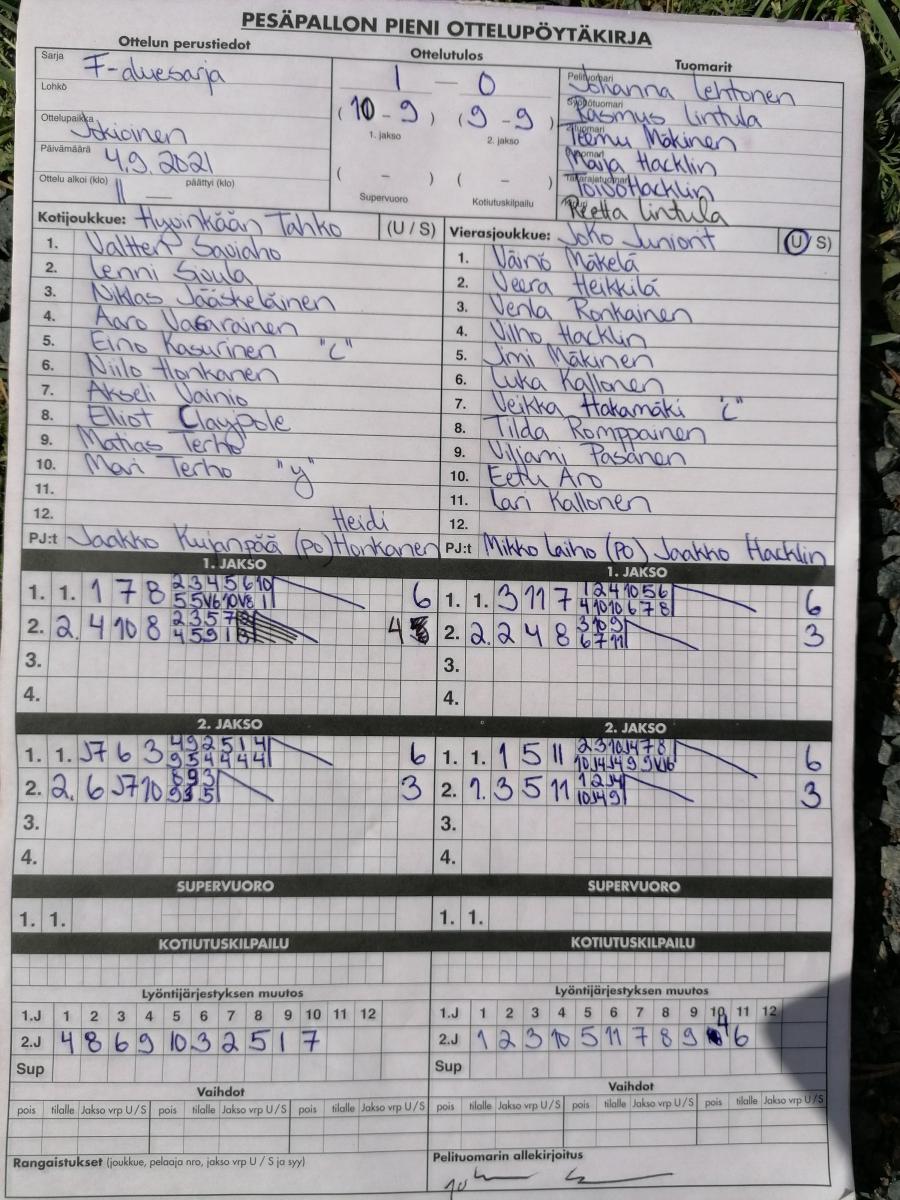 PESÄPALLON PIENI OTTELUPÖYTÄKIRJA
Ottelun perustiedot
Ottelutulos
Tuomarit
Sarja F-aluesarja
Lohkö
Ottelupaikka Jokioinen
Päivämäärä 4.9.2021
Ottelu alkoi (klo) 11 päättyi (klo)
1 — 0
(10 - 9) (9 - 9)
1. jakso 2. jakso
( - ) ( - )
Supervuoro Kotiutuskilpailu
Pelituomari Johanna Lehtonen
Syöttötuomari Rasmus Lintula
Teemu Mäkinen
Maija Hacklin
Takarajatuomari Toivo Hacklin
Reetta Lintula
Kotijoukkue: Hyvinkään Tahko (U / S)
1. Valtteri Sapiaho
2. Lenni Sivula
3. Niklas Jääskeläinen
4. Aaro Vasarainen
5. Eino Kasurinen "C"
6. Niilo Honkanen
7. Akseli Vainio
8. Elliot Claypole
9. Matias Terho
10. Mari Terho "y"
11.
12.
PJ:t Jaakko Kujanpää (PO) Heidi Honkanen
Vierasjoukkue: JoKo Juniorit (U / S)
1. Väinö Mäkelä
2. Veera Heikkilä
3. Venla Ronkainen
4. Vilho Hacklin
5. Jimi Mäkinen
6. Luka Kallonen
7. Veikka Hakamäki "C"
8. Tilda Romppainen
9. Viljami Pasanen
10. Eetu Aro
11. Lari Kallonen
12.
PJ:t Mikko Laiho (PO) Jaakko Hacklin
1. JAKSO
1. 1. 1 7 8 2 3 4 5 6 10 6
5 5 V6 10 V8 1
2. 2. 4 10 8 2 3 5 7 4
4 5 9 1
3.
4.
1. JAKSO
1. 1. 3 11 7 1 2 4 10 5 6 6
4 10 10 6 7 8
2. 2. 2 4 8 3 10 9 3
6 7 11
3.
4.
2. JAKSO
1. 1. J7 6 3 4 9 2 5 1 4 6
9 5 4 4 4 4
2. 2. 6 J7 10 8 9 3 3
9 3 5
3.
4.
2. JAKSO
1. 1. 1 5 11 2 3 10 J4 7 8 6
10 J4 J4 9 9 V6
2. 1. 3 5 11 1 2 J4 3
10 J4 9
3.
4.
SUPERVUORO
1. 1.
SUPERVUORO
1. 1.
KOTIUTUSKILPAILU
KOTIUTUSKILPAILU
Lyöntijärjestyksen muutos
1.J 1 2 3 4 5 6 7 8 9 10 11 12
2.J 4 8 6 9 10 3 2 5 1 7
Sup
Lyöntijärjestyksen muutos
1.J 1 2 3 4 5 6 7 8 9 10 11 12
2.J 1 2 3 10 5 11 7 8 9 4 6
Sup
Vaihdot
pois tilalle Jakso vrp U / S pois tilalle Jakso vrp U / S pois tilalle Jakso vrp U / S
Vaihdot
pois tilalle Jakso vrp U / S pois tilalle Jakso vrp U / S pois tilalle Jakso vrp U / S
Rangaistukset (joukkue, pelaaja nro, jakso vrp U / S ja syy)
Pelituomarin allekirjoitus